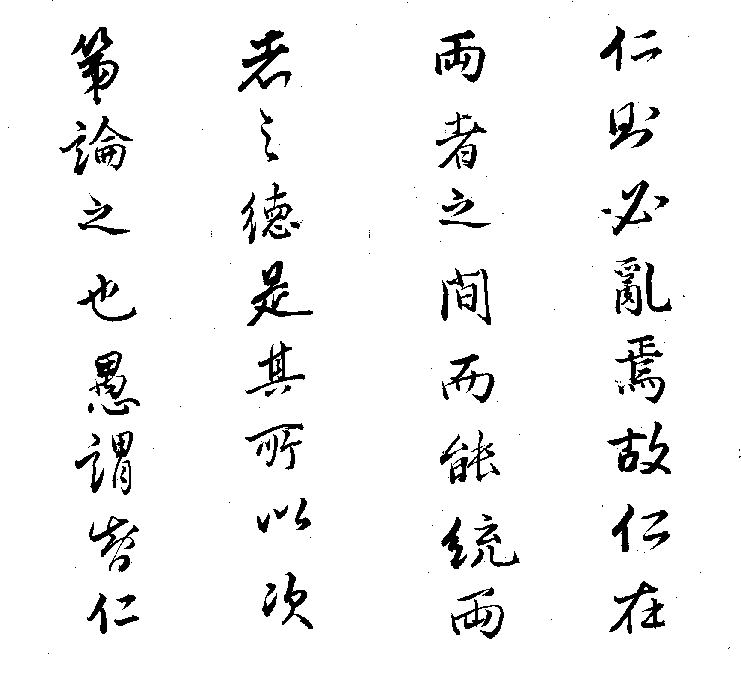 仁則必亂焉故仁在
兩者之間而能統兩
者之德是其所以次
第論之也愚謂智仁